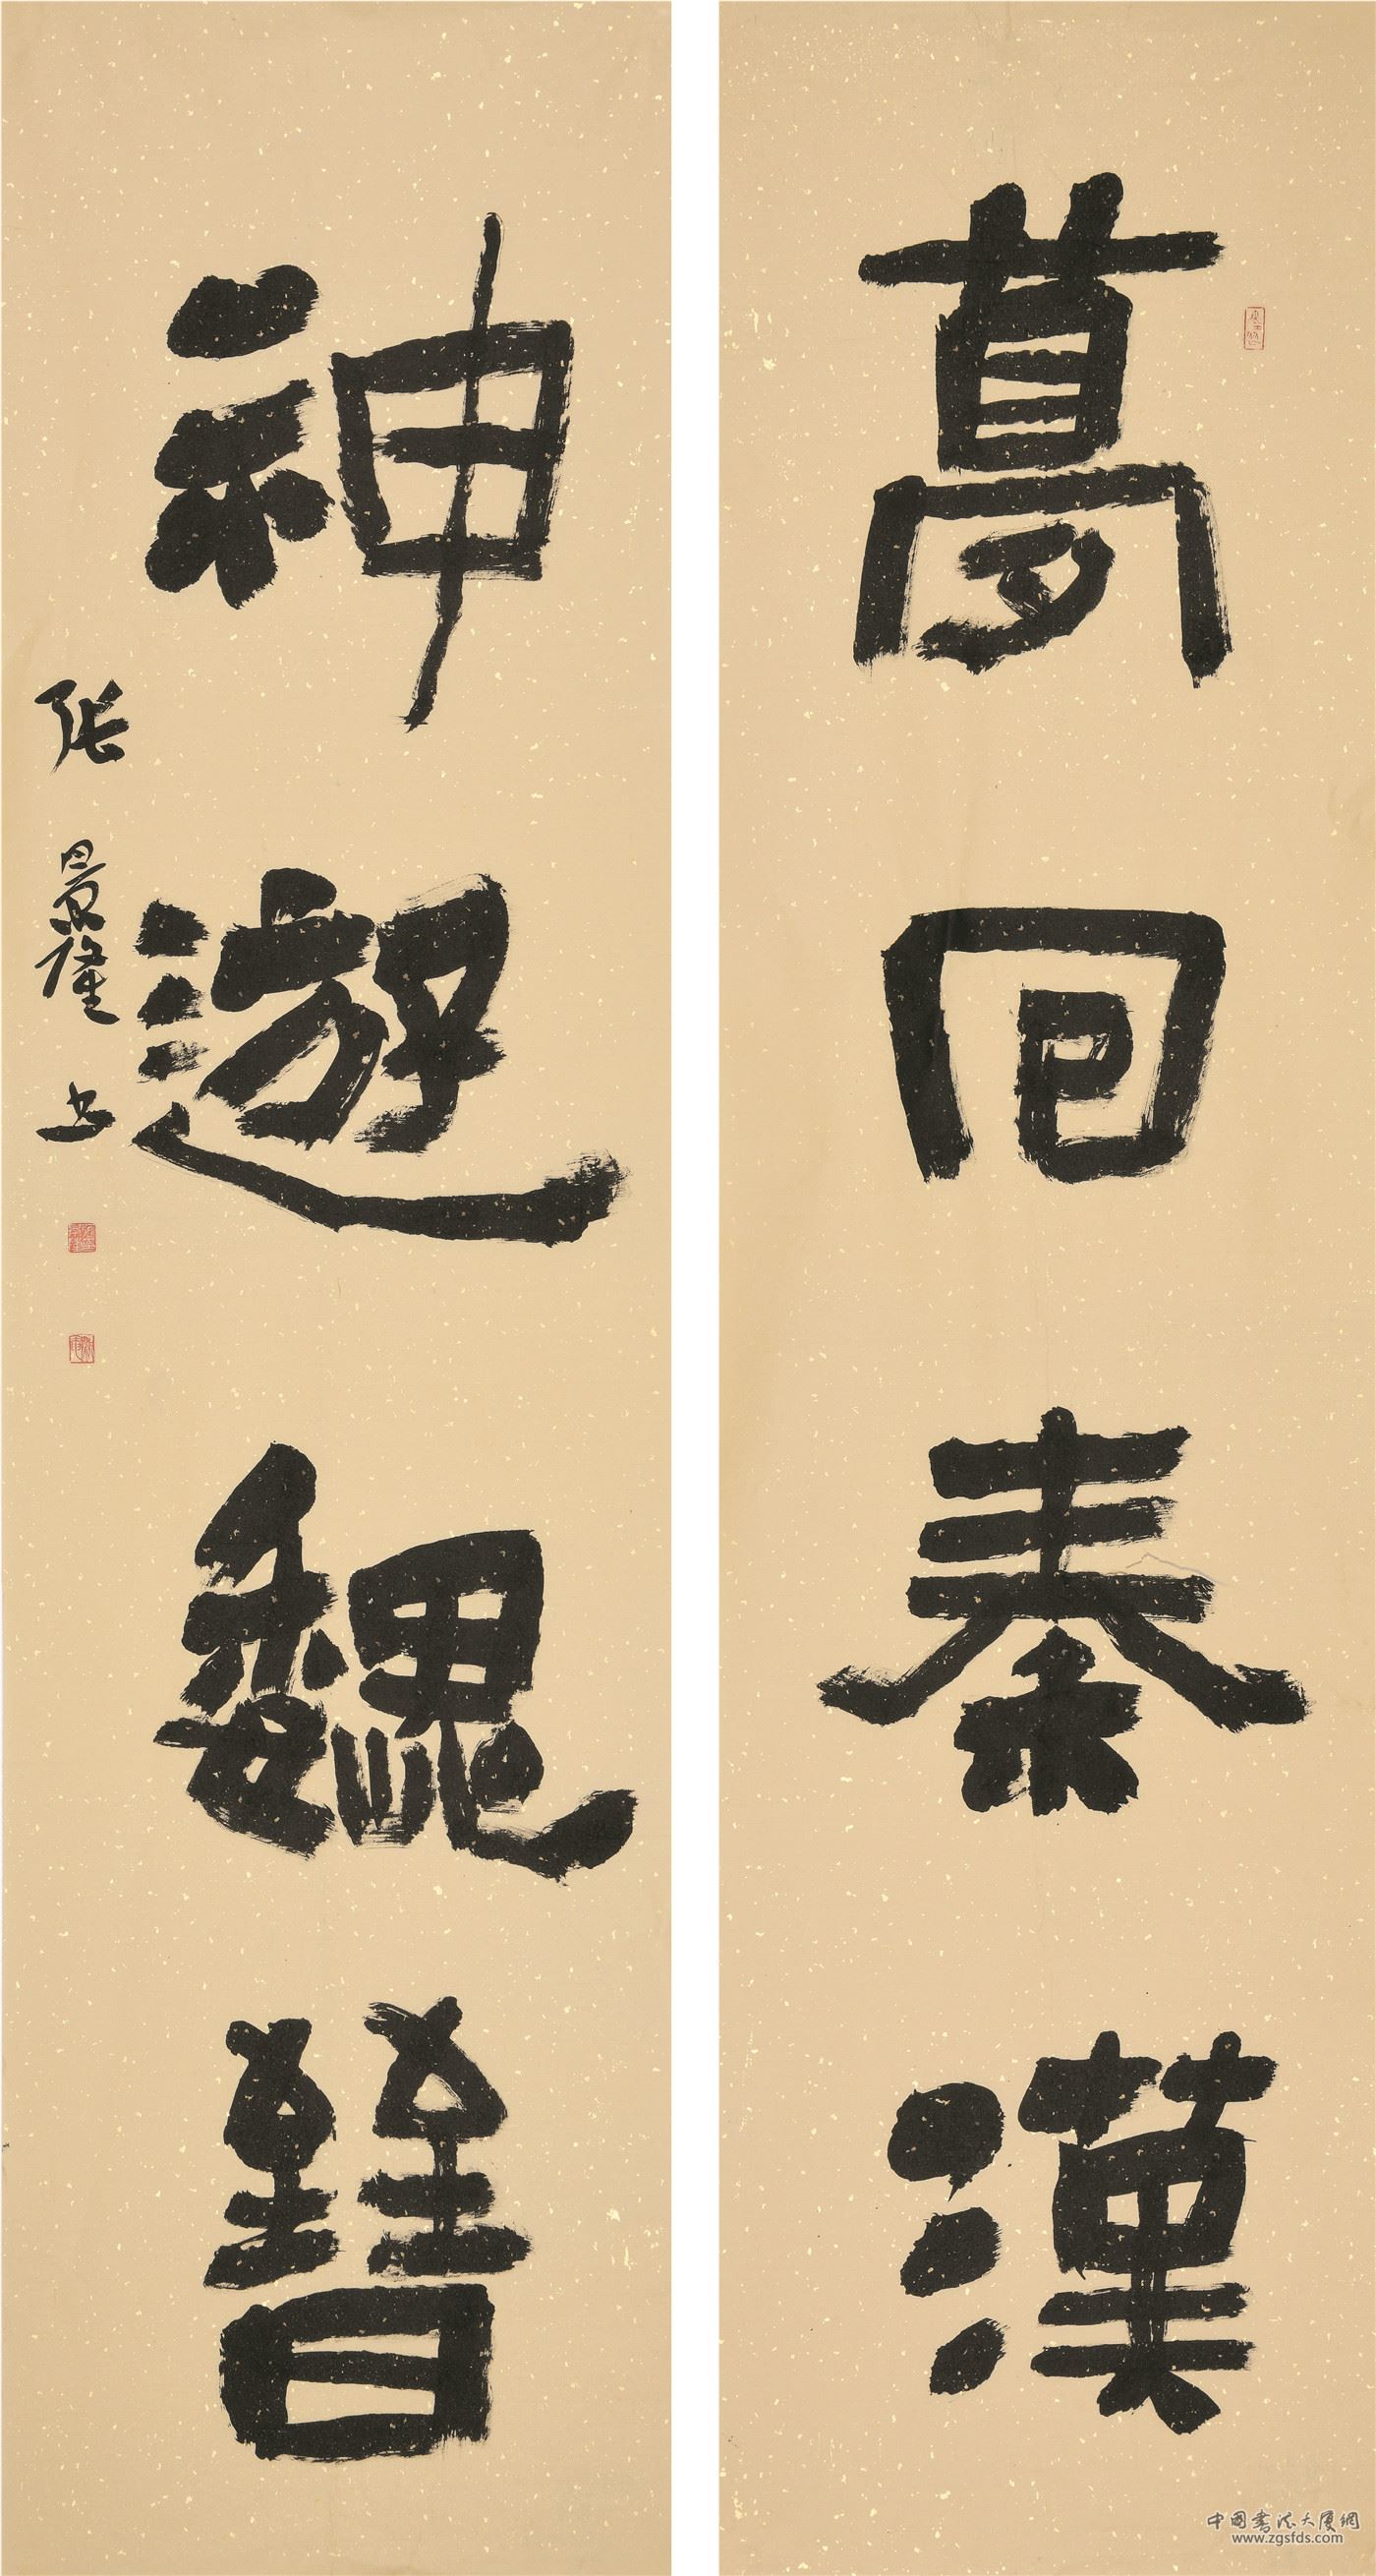 夢回秦漢
神遊魏晉
張景隆書
中国书法大厦網
www.zgsfds.com